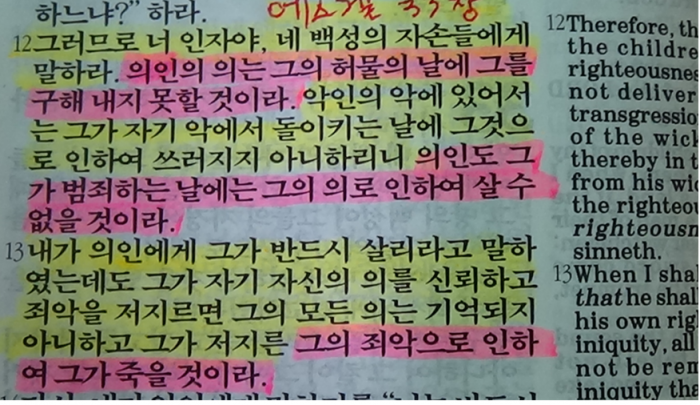 하느냐?" 하라.
에스겔 33장
12그러므로 너 인자야, 네 백성의 자손들에게
말하라. 의인의 의는 그의 허물의 날에 그를
구해 내지 못할 것이라. 악인의 악에 있어서
는 그가 자기 악에서 돌이키는 날에 그것으
로 인하여 쓰러지지 아니하리니 의인도 그
가 범죄하는 날에는 그의 의로 인하여 살 수
없을 것이라.
13내가 의인에게 그가 반드시 살리라고 말하
였는데도 그가 자기 자신의 의를 신뢰하고
죄악을 저지르면 그의 모든 의는 기억되지
아니하고 그가 저지른 그의 죄악으로 인하
여 그가 죽을 것이라.
12Therefore, th
the childre
righteousne
not deliver
transgressio
of the wick
thereby in t
from his wic
the righteou
righteousn
sinneth.
13When I sha
that he shal
his own rig
iniquity, all
not be ren
iniquity tha